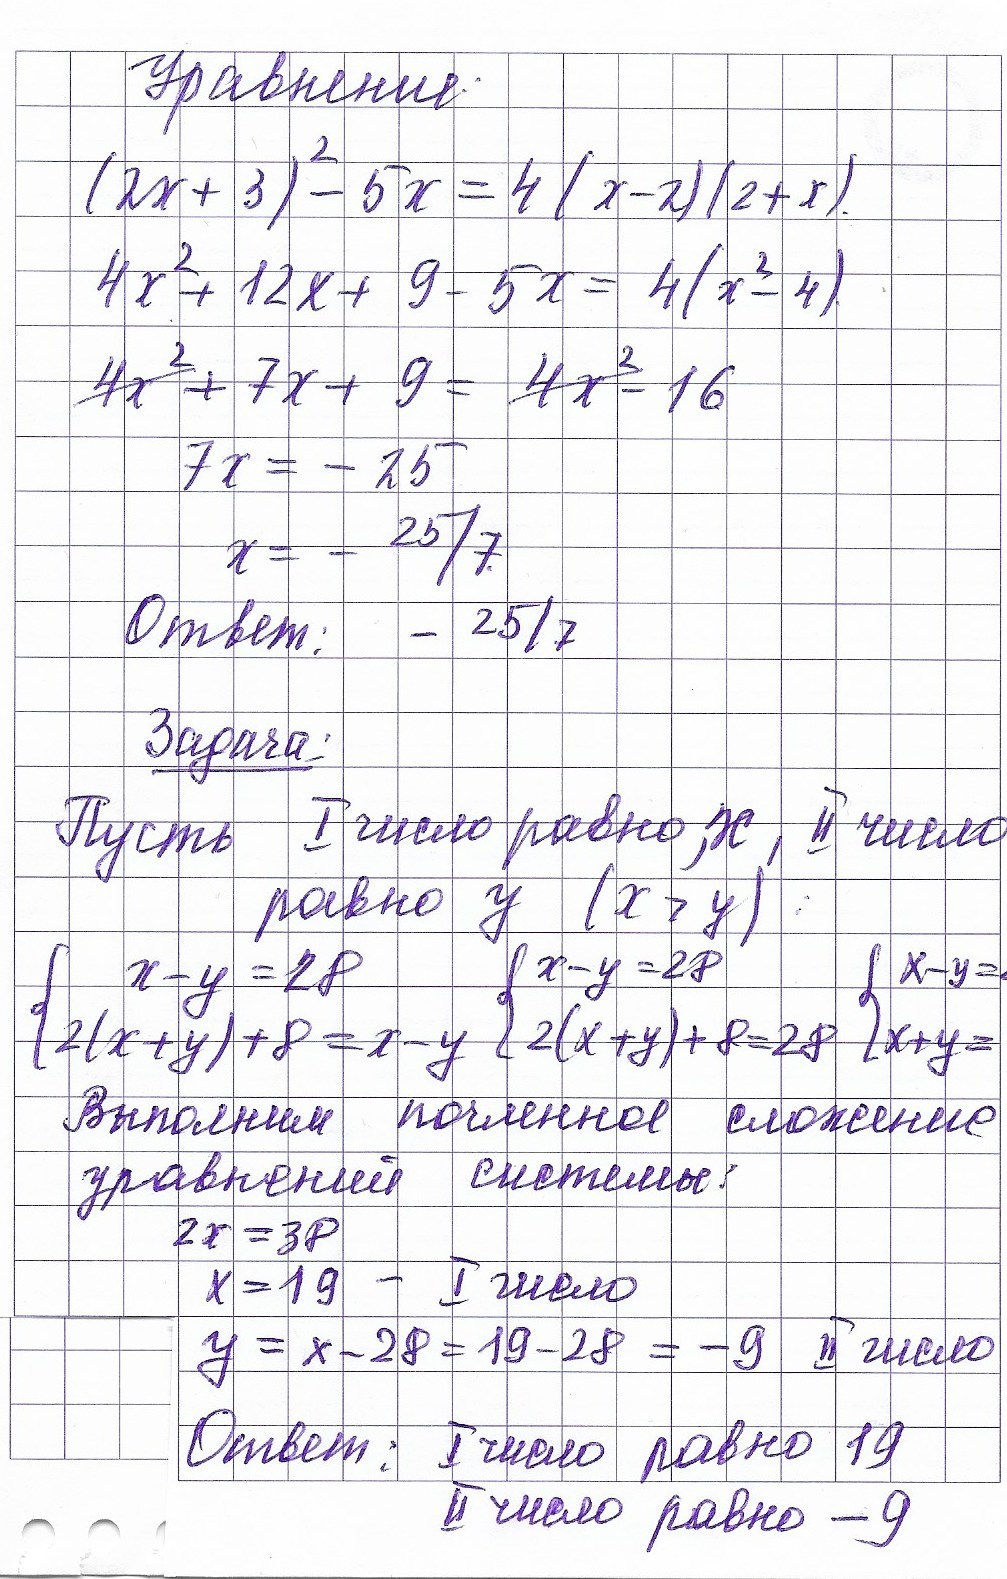 Уравнение:
(2x + 3)² - 5x = 4(x-2)(2+x).
4x² + 12x + 9 - 5x = 4(x² - 4)
4x² + 7x + 9 = 4x² - 16
7x = - 25
x = - 25/7
Ответ: - 25/7
Задача:
Пусть I число равно x, II число
равно y (x > y) :
{ x-y = 28 { x-y = 28 { x-y =
{ 2(x+y)+8 = x-y { 2(x+y)+8=28 { x+y =
Выполним почленное сложение
уравнений системы:
2x = 38
x = 19 - I число
y = x-28 = 19-28 = -9 II число
Ответ: I число равно 19
II число равно -9